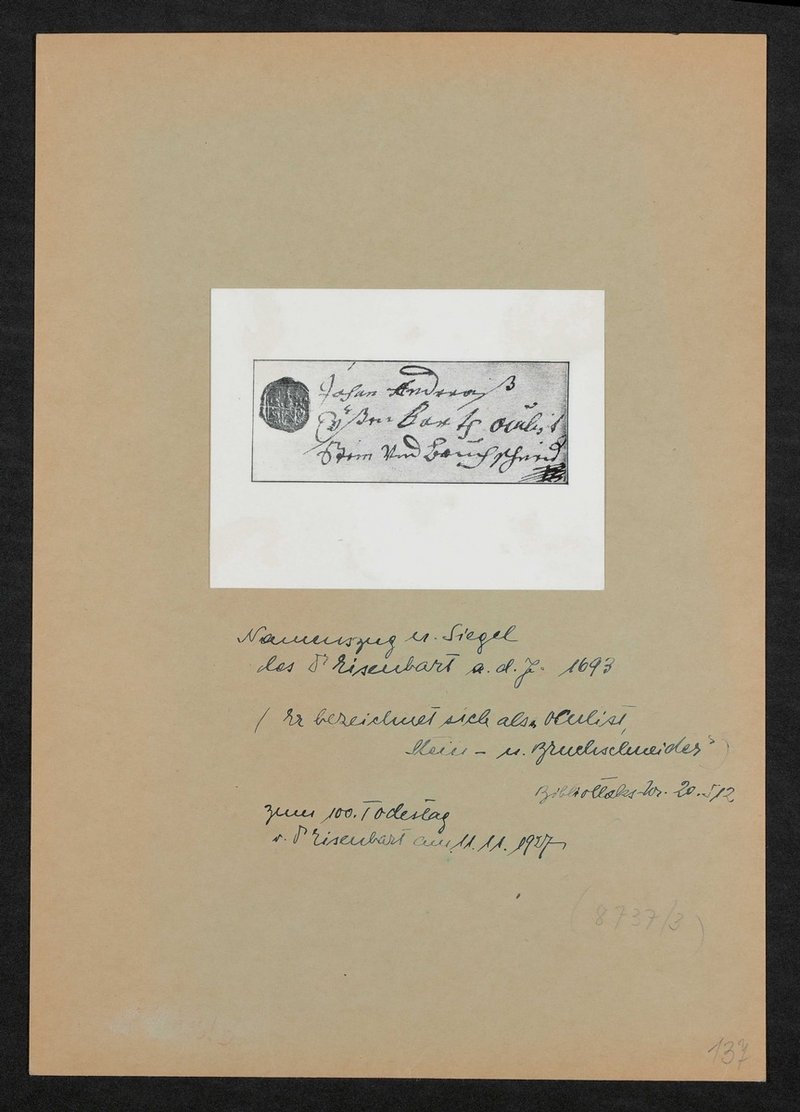 Johan Andreaß
Eÿßenbarth oculist
Stein Vnd Bruchschneid
Namenszug u. Siegel
des Dr Eisenbart a. d. J. 1693
( Er bezeichnet sich als „Okulist,
Stein- u. Bruchschneider“ )
Bibliotheks-Nr. 20.512
zum 100. Todestag
v. Dr Eisenbart am 11.11.1927
( 8737/3 )
137